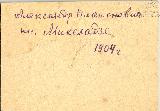 Александр Платонович
кн. Микеладзе
1904 г.